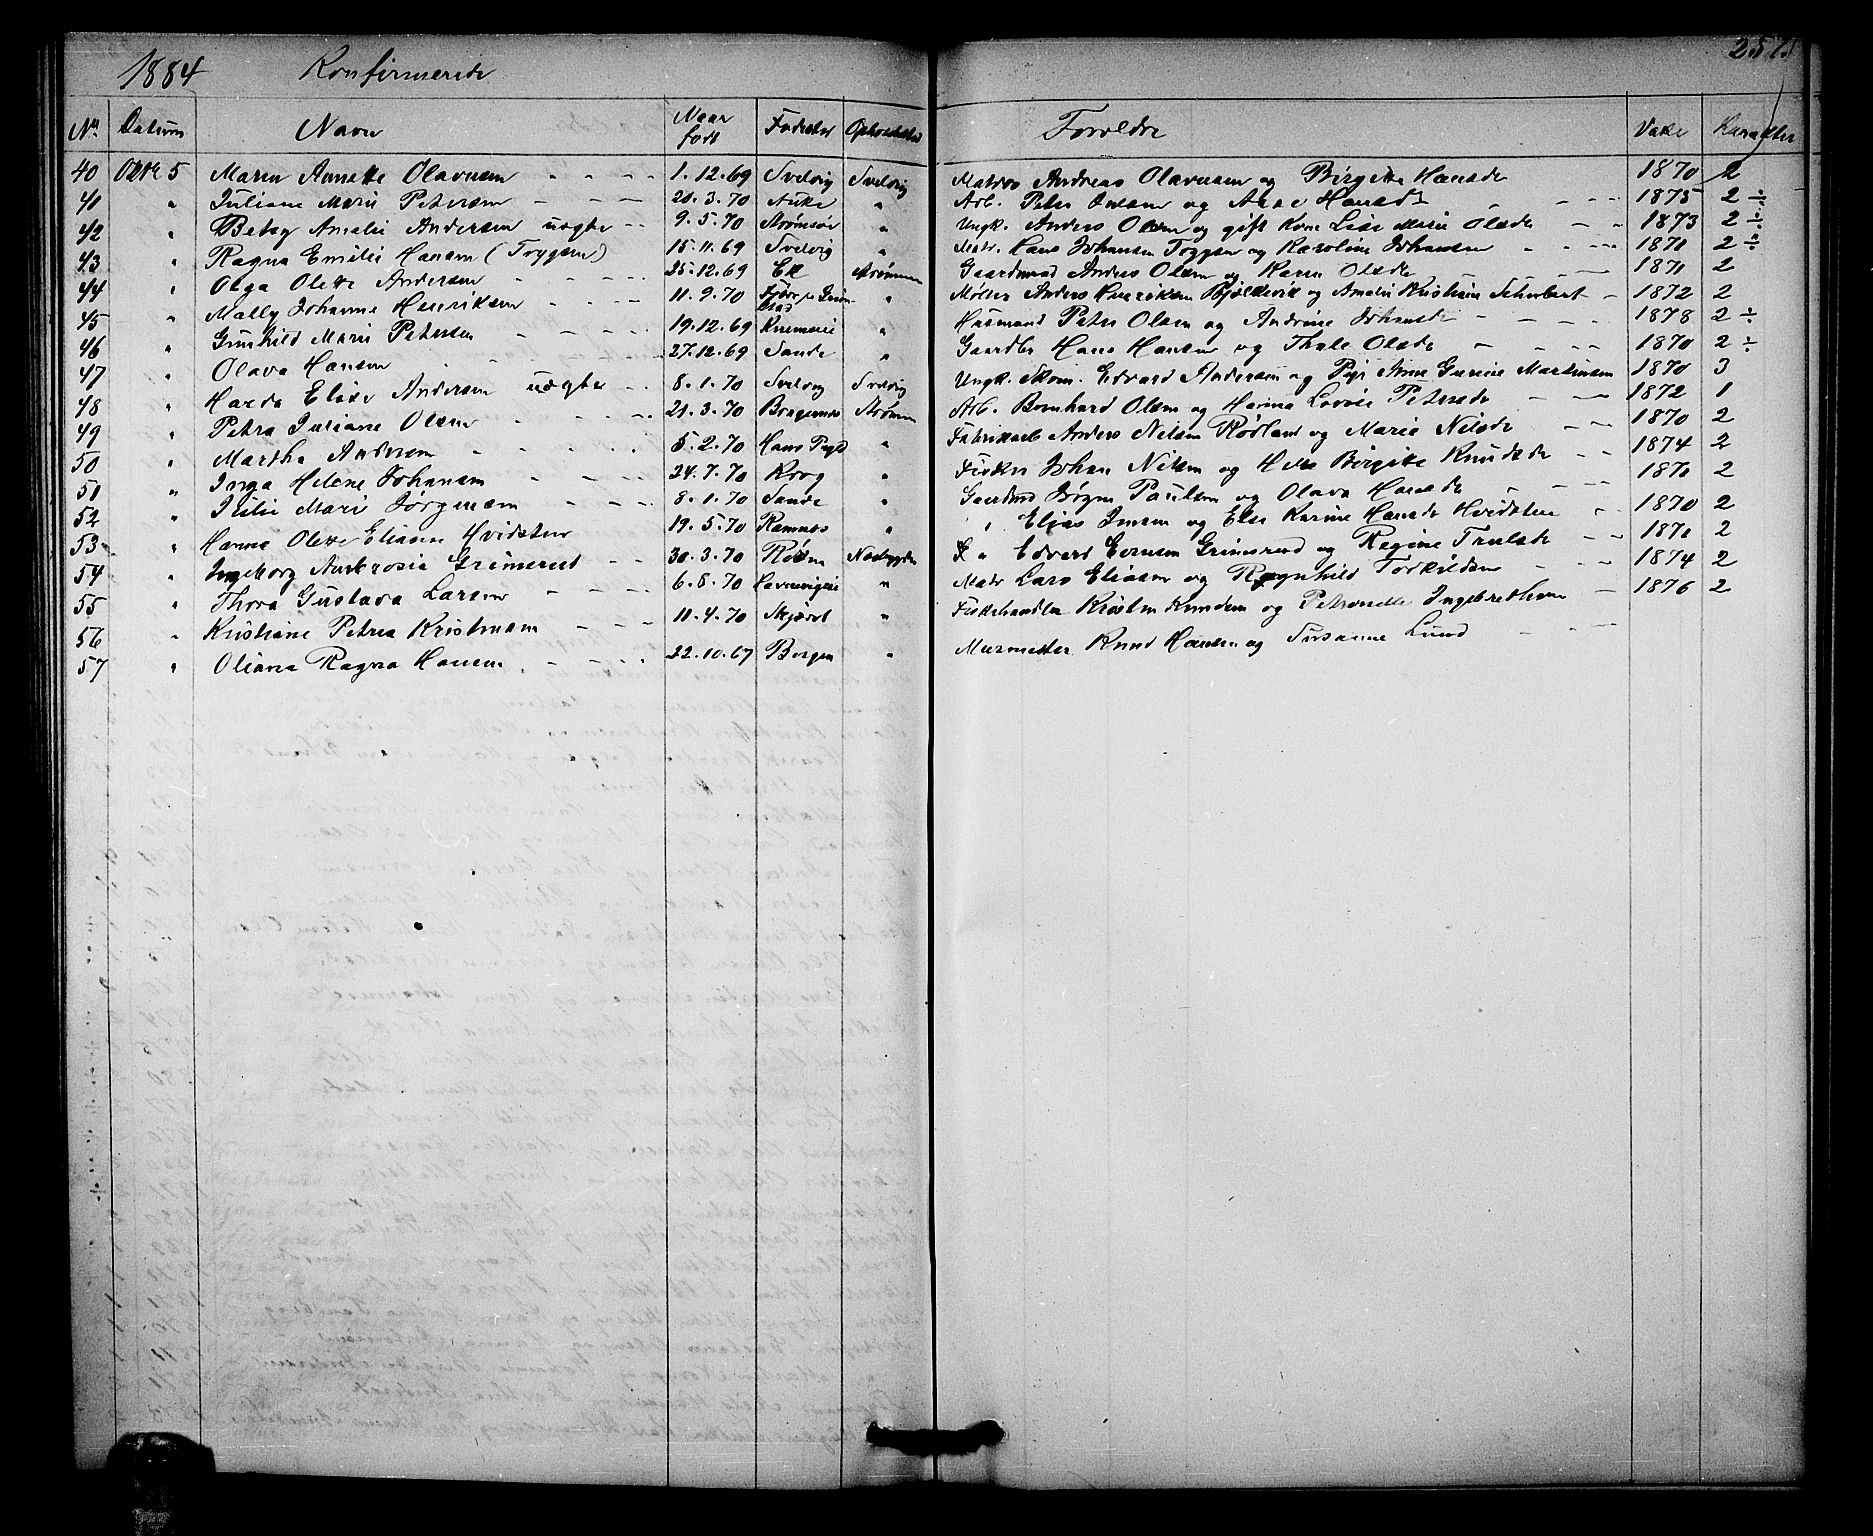 1884 Konfirmerede 257.
No Datum Navn Naar født Fødested Opholdssted Forældre Vacc Karakter
40 Oktbr 5 Maren Annette Olavesen 1.12.69 Svelvig Svelvig Matros Andreas Olavesen og Birgitte Hansdr 1870 2
41 " Juliane Marie Petersen 21.3.70 " Arb. Peter og Hansdr 1875 2 ÷
42 " Betsy Amalie Andersen uægte 9.5.70 Strømsøe " Ungk. Anders Olsen og gift Kone Lise Marie Olsdr 1873 2 ÷
43 " Ragna Emilie Hansen (Tryggsen) 15.11.69 Svelvig " Matr. Hans Johansen Tryggsen og Karoline Johansen 1871 2 ÷
44 " Olga Olette Andersen 25.12.69 Ek Strømmen Gaardmand Anders Olsen og Karen Olsdr 1871 2
45 " Mally Johanne Henriksen 11.9.70 " Møller Anders Henriksen og Amalie Kristiane Schubert 1872 2
46 " Gunhild Marie Petersen 19.12.69 " Husmand Peter Olsen og Andrine Johansdr 1878 2 ÷
47 " Olava Hansen 27.12.69 Sande " Gaardbr Hans Hansen og Thale Olsdr 1870 2 ÷
48 " Harda Elise Andersen uægte 8.1.70 Svelvig Svelvig Ungk. Skom. Edvard Andersen og Pige Anne Gurine Martinsen 1870 3
49 " Petra Juliane Olsen 21.3.70 Bragernes Strømm Arb. Bernhard Olsen og Hanna Lovise Petersdr 1872 1
50 " Martha Andersen 5.2.70 " Fabrikarb Anders Nilsen Rødland og Maria Nilsdr 1870 2
51 " Inga Helene Johansen 24.7.70 Krog " Fisker Johan Nilsen og Helle Birgitte Knudsdr 1874 2
52 " Julie Marie Jørgensen 8.1.70 Sande " Gaardmd Jørgen Paulsen og Olava Hansdr 1871 2
53 " Hanna Olette Eliasen Hvidsten 19.5.70 Ramnes " " Elias Jensen og Else Karine Hansdr Hvidsten 1870 2
54 " Ingeborg Ambrosia Grimsrud 30.3.70 Røken Nesbygden " Edvard Evensen Grimsrud og Regine Trulsdr 1871 2
55 " Thora Gustava Larsen 6.8.70 " Matr Lars Eliasen og Ragnhild Torkildsen 1874 2
56 " Kristiane Petrea Kristensen 11.4.70 " Fiskehandler Kristen Knudsen og Petronelle Ingebrethsen 1876 2
57 " Oliana Ragna Hansen 22.10.67 Bergen " Murmester Knud Hansen og Susanne Lund